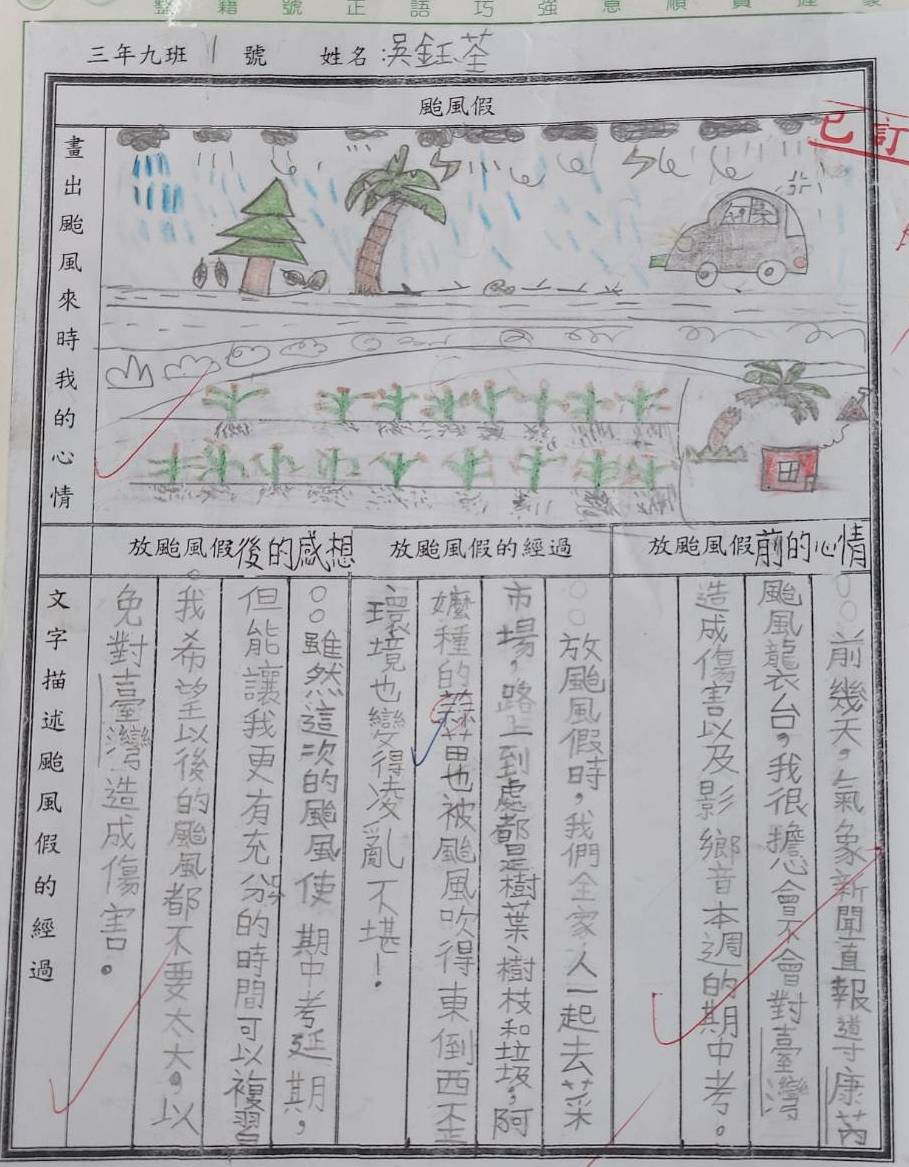 整潔 號正語巧強意順負捷
三年九班 1 號 姓名:吳鈺荃
颱風假
已訂
畫出颱風來時我的心情
放颱風假前的心情
放颱風假的經過
放颱風假後的感想
文字描述颱風假的經過
前幾天,氣象新聞直報導康芮
颱風襲台,我很擔心會不會對臺灣
造成傷害以及影響本週的期中考。
放颱風假時,我們全家人一起去菜
市場,路上到處都是樹葉、樹枝和垃圾,阿
嬤種的蒜苗也被颱風吹得東倒西歪
環境也變得凌亂不堪!
雖然這次的颱風使期中考延期,
但能讓我更有充分的時間可以複習
。我希望以後的颱風都不要太大。以
免對臺灣造成傷害。